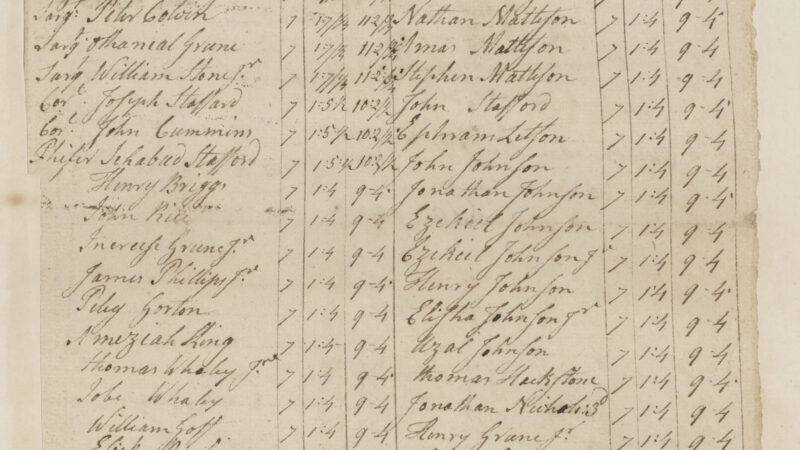 Sarjt. Peter Colvin 7 1:7 1/4 11 2 1/4 Nathan Matteson 7 1:4 9-4
Sarjt Othaneal Grene 7 1:7 1/4 11 2 1/4 Amas Mattyson 7 1:4 9-4
Sarjt William Stone Jr 7 1:7 1/4 11 2 1/4 Stephen Matteson 7 1:4 9-4
Corl. Joseph Stafford 7 1:5 1/2 10 2 1/2 John Stafford 7 1:4 9-4
Corl. John Cummins 7 1:5 1/2 10 2 1/2 Ephram Letson 7 1:4 9-4
Phifer Ichabad Stafford 7 1:5 1/2 10 2 1/2 John Johnson 7 1:4 9-4
Henry Briggs 7 1:4 9-4 Jonathan Johnson 7 1:4 9-4
John Rice 7 1:4 9-4 Ezekiel Johnson 7 1:4 9-4
Increese Grene Jr 7 1:4 9-4 Ezekiel Johnson Jr 7 1:4 9-4
James Phillips Jr 7 1:4 9-4 Henry Johnson 7 1:4 9-4
Peleg Gorton 7 1:4 9-4 Elisha Johnson Jr 7 1:4 9-4
Ameziah King 7 1:4 9-4 Uzal Johnson 7 1:4 9-4
thomas Whaley 7 1:4 9-4 thomas Hackstone 7 1:4 9-4
Jobe Whaley 7 1:4 9-4 Jonathan Nichols 3d 7 1:4 9-4
William Goff 7 1:4 9-4 Henry Grene Jr 7 1:4 9-4